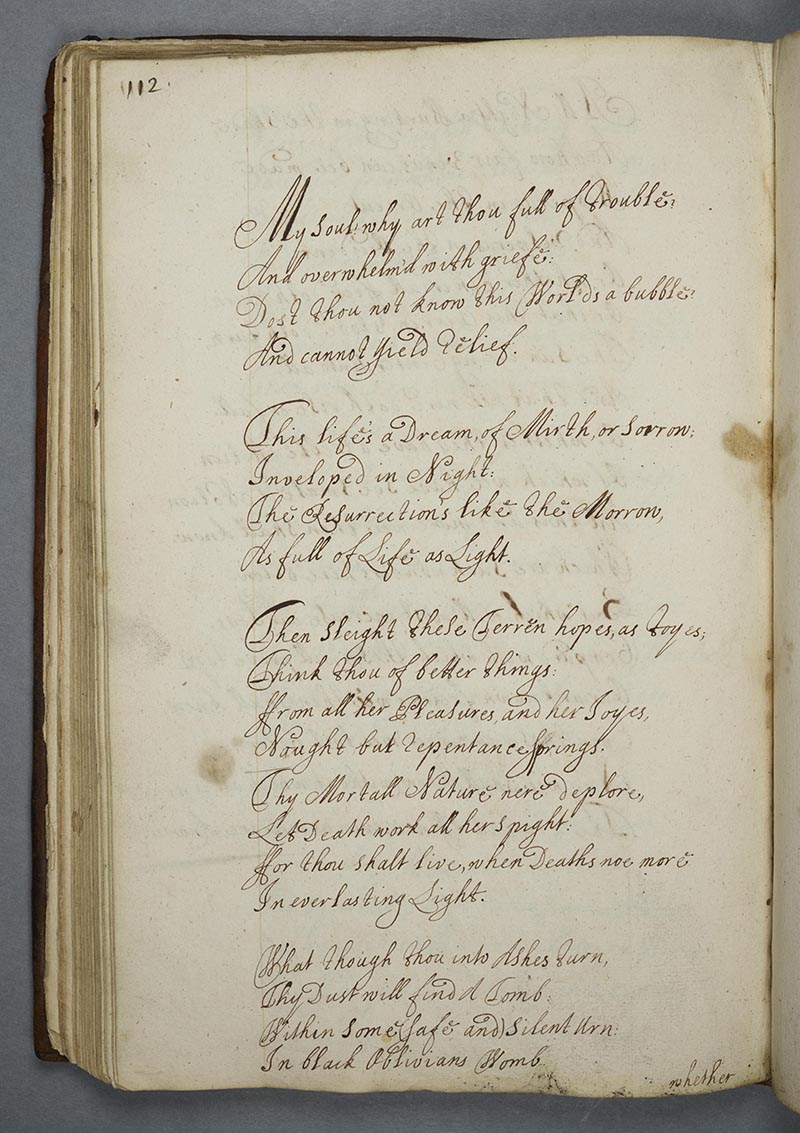 112.
My soul: why art thou full of trouble?
And overwhelm'd with griefe:
Dost thou not know this World's a bubble?
And cannot yield relief.
This life's a Dream, of Mirth, or sorrow;
Inveloped in Night:
The Resurrection's like the Morrow,
As full of Life as Light.
Then sleight these Terren hopes, as toyes;
Think thou of better things:
ffrom all her Pleasures, and her Joyes,
Nought but repentance springs.
Thy Mortall Nature nere deplore,
Let Death work all her spight:
ffor thou shalt live, when Deaths noe more
In everlasting Light.
What though thou into Ashes turn,
Thy Dust will find A Tomb:
Within some (safe and) silent Urn:
In black Oblivians Womb
whether